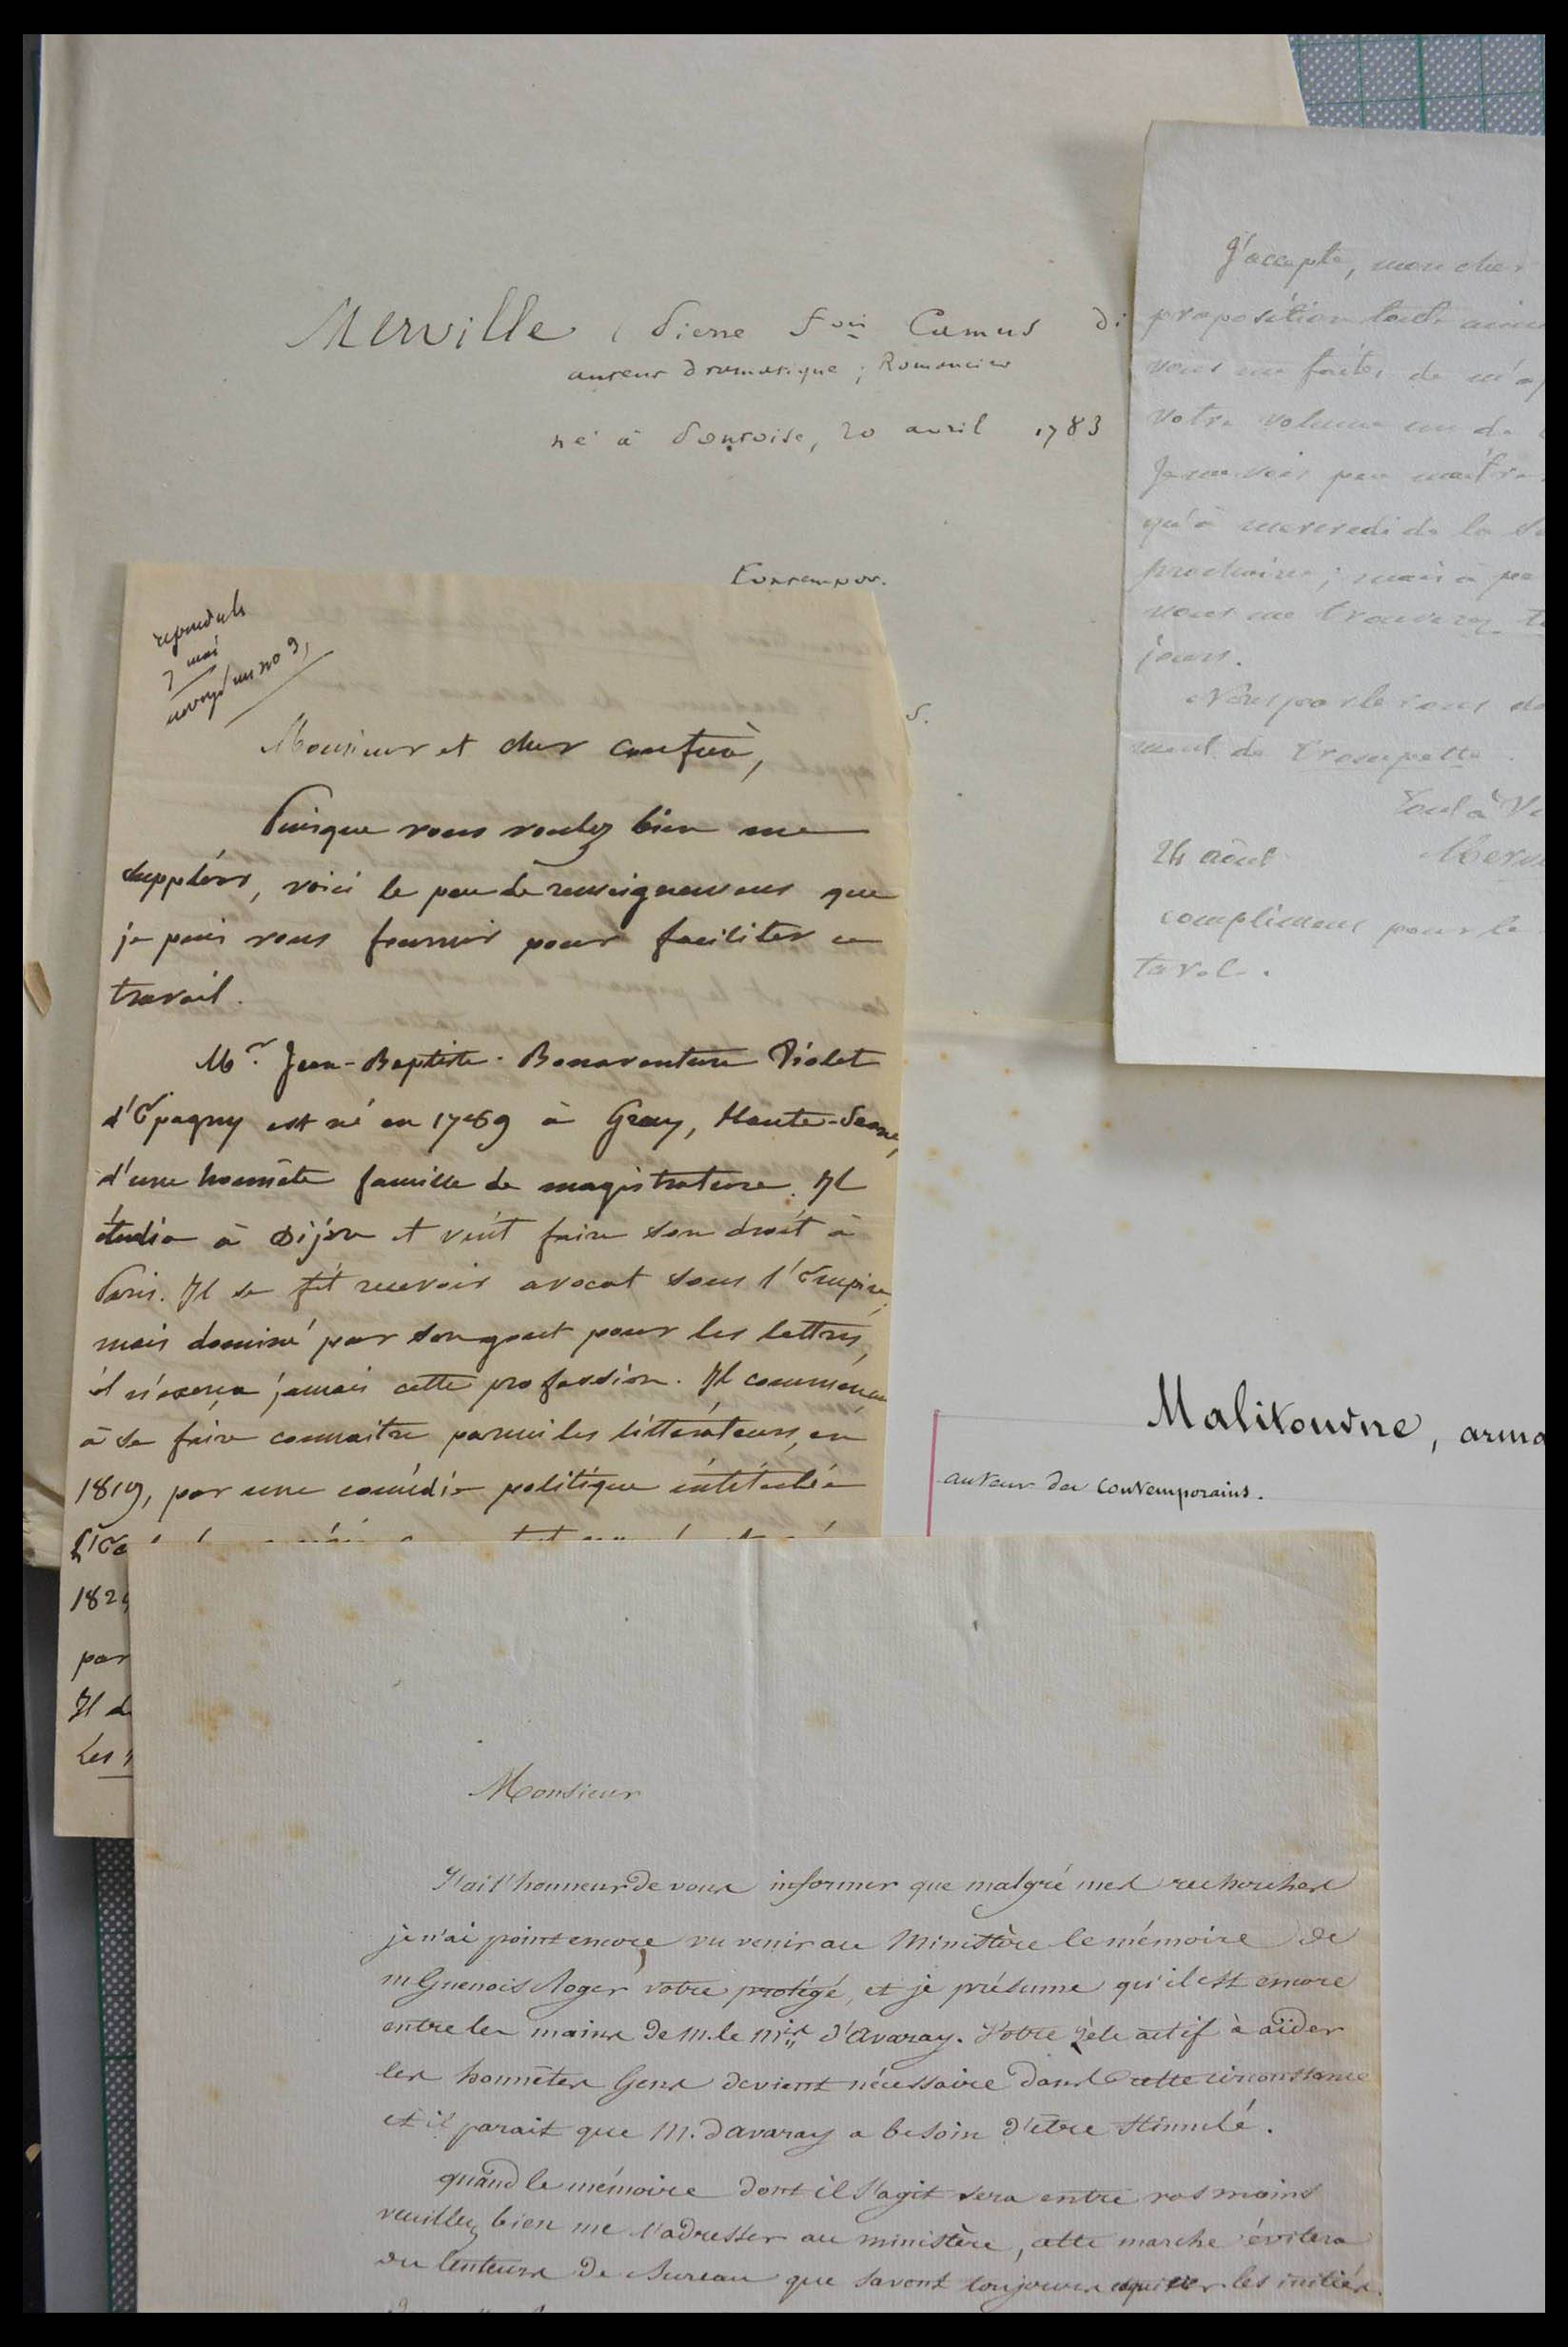 Merville, Pierre fois Camus di
auteur dramatique; Romancier
né à Pontoise, 20 avril 1783
Contempor.
J'accepte, mon cher
proposition toute
vous me faites de
votre volume un de
Je ne serai pas
qu'à mercredi de la
prochaine; mais à
vous me trouverez
jours.
Nous parlerons
de Trompette.
Tout à Vo
24 août
compliment pour le
répondu le
7 mai
envoyé no 9,
Monsieur et cher confrère,
Puisque vous voulez bien me
suppléer, voici le peu de renseignemens que
je puis vous fournir pour faciliter ce
travail.
Mr. Jean-Baptiste-Bonaventure Violet
d'Épagny est né en 1789 à Gray, Haute-Saone,
d'une honnête famille de magistrature. Il
étudia à Dijon et vint faire son droit à
Paris. Il se fit recevoir avocat sous l'Empire,
mais dominé par son gout pour les lettres,
il n'exerça jamais cette profession. Il commença
à se faire connaitre parmi les littérateurs, en
1819, par une comédie politique intitulée
182
par
Il d
Les
Malitourne, arma
auteur des contemporains.
Monsieur
J'ai l'honneur de vous informer que malgré mes recherches
je n'ai point encore vu venir au Ministère le mémoire de
m Guenois Roger, votre protégé, et je présume qu'il est encore
entre les mains de m. le mis d'avaray. Votre zèle actif à aider
les honnêtes Gens devient nécessaire dans cette circonstance
et il parait que M. Davaray a besoin d'être stimulé.
quand le mémoire dont il s'agit sera entre vos mains
veuillez bien me l'adresser au ministère, cette marche évitera
des lenteurs de Bureau que savent toujours esquiver les initiés.